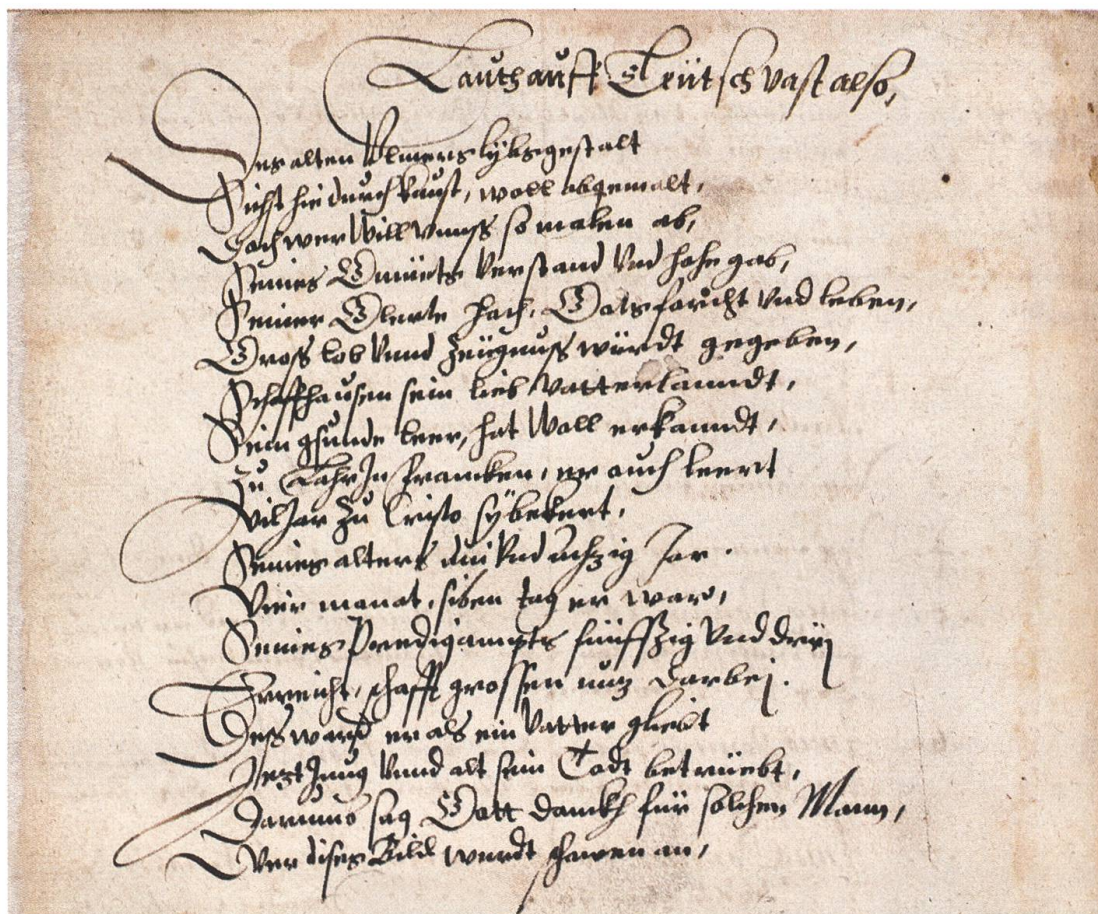 Lauth auff Teütsch vast also,
Des alten Ulmers lybsgestalt
Sichst hie durch kunst, woll abgemalt,
Doch wer will unnss so malen ab,
Seines Gmüets verstand und hohe gab,
Seiner Glerte hach, Gotsforcht und leben,
Gross lob unnd Zeügnuss würdt gegeben,
Schaffhausen sein lieb Vatterlanndt,
Sein gsunde leer, hat woll erkanndt,
Zu Lahr In Francken, er auch leert
Vil Jar zu Cristo sy bekert,
Seines alters dni und achzig Jar
Vier manat, siben tag er warO,
Seines Predigampts fünffzig und drÿ
Erreicht, schafft grossen nutz darbeÿ.
Dess ward er als ein Vatter gliebt
Jetzt Jung unnd alt sein Todt betrüebt,
Darumb sag Gott dankh für solchen Mann,
Wer dises Bild wurdt schawen an,